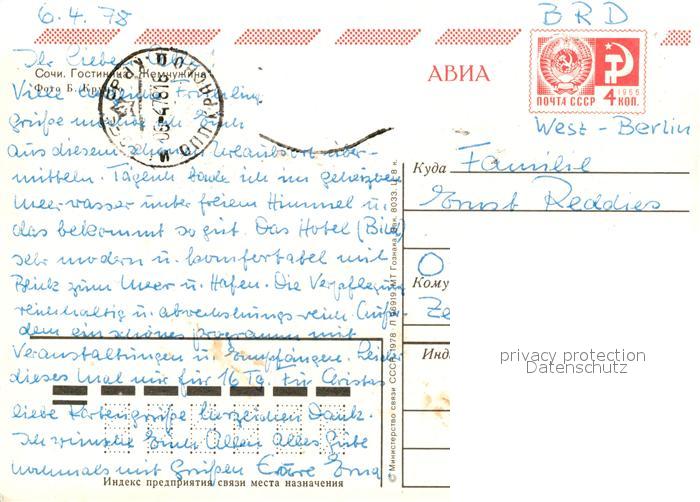 6.4.78
BRD
Ihr Lieben Alle!
Сочи. Гостиница „Жемчужина“
Фото Б.
АВИА
ПОЧТА СССР 1966 4 КОП.
Viele Frühling
grüße möchte ich Euch
West-Berlin
aus diesem schönen Urlaubsort über-
mitteln. Täglich bade ich im geheizten
Meerwasser unter freiem Himmel u.
das bekommt so gut. Das Hotel (Bild)
sehr modern u. komfortabel mit
Blick zum Meer u. Hafen. Die Verpflegung
reichhaltig u. abwechslungsreich. Außer-
dem ein schönes Programm mit
Veranstaltungen u. Empfängen. Leider
dieses Mal nur für 16 Tg. Für Christas
liebe Kartengrüße herzlichen Dank.
Ich wünsche Euch Allen Alles Gute
nochmals mit Grüßen Eure Erna
Индекс предприятия связи места назначения
© Министерство связи СССР 1978 МТ Гознака 8033. Ц. 8 к.
Куда Familie
Ernst Reddies
O
Кому
Ze
Инд
privacy protection
Datenschutz